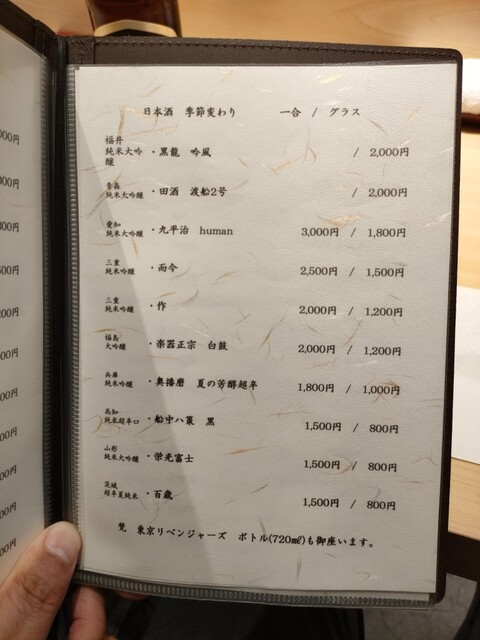 日本酒 季節変わり 一合 / グラス
福井
純米大吟醸 ・黒龍 吟風 / 2,000円
青森
純米大吟醸 ・田酒 渡船2号 / 2,000円
愛知
純米大吟醸 ・九平治 human 3,000円 / 1,800円
三重
純米吟醸 ・而今 2,500円 / 1,500円
三重
純米吟醸 ・作 2,000円 / 1,200円
福島
大吟醸 ・楽器正宗 白鼓 2,000円 / 1,200円
兵庫
純米吟醸 ・奥播磨 夏の芳醇超辛 1,800円 / 1,000円
高知
純米超辛口 ・船中八策 黒 1,500円 / 800円
山形
純米大吟醸 ・栄光富士 1,500円 / 800円
茨城
超辛夏純米 ・百歳 1,500円 / 800円
梵 東京リベンジャーズ ボトル(720㎖)も御座います。